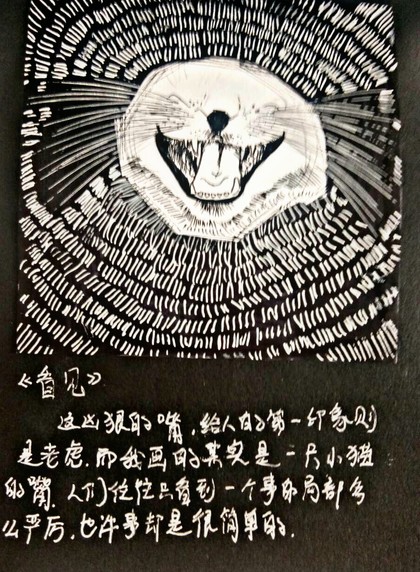 《看见》
这凶狠的嘴,给人的第一印象则
是老虎.而我画的其实是一只小猫
的嘴.人们往往只看到一个事的局部多
么严厉,也许事却是很简单的.